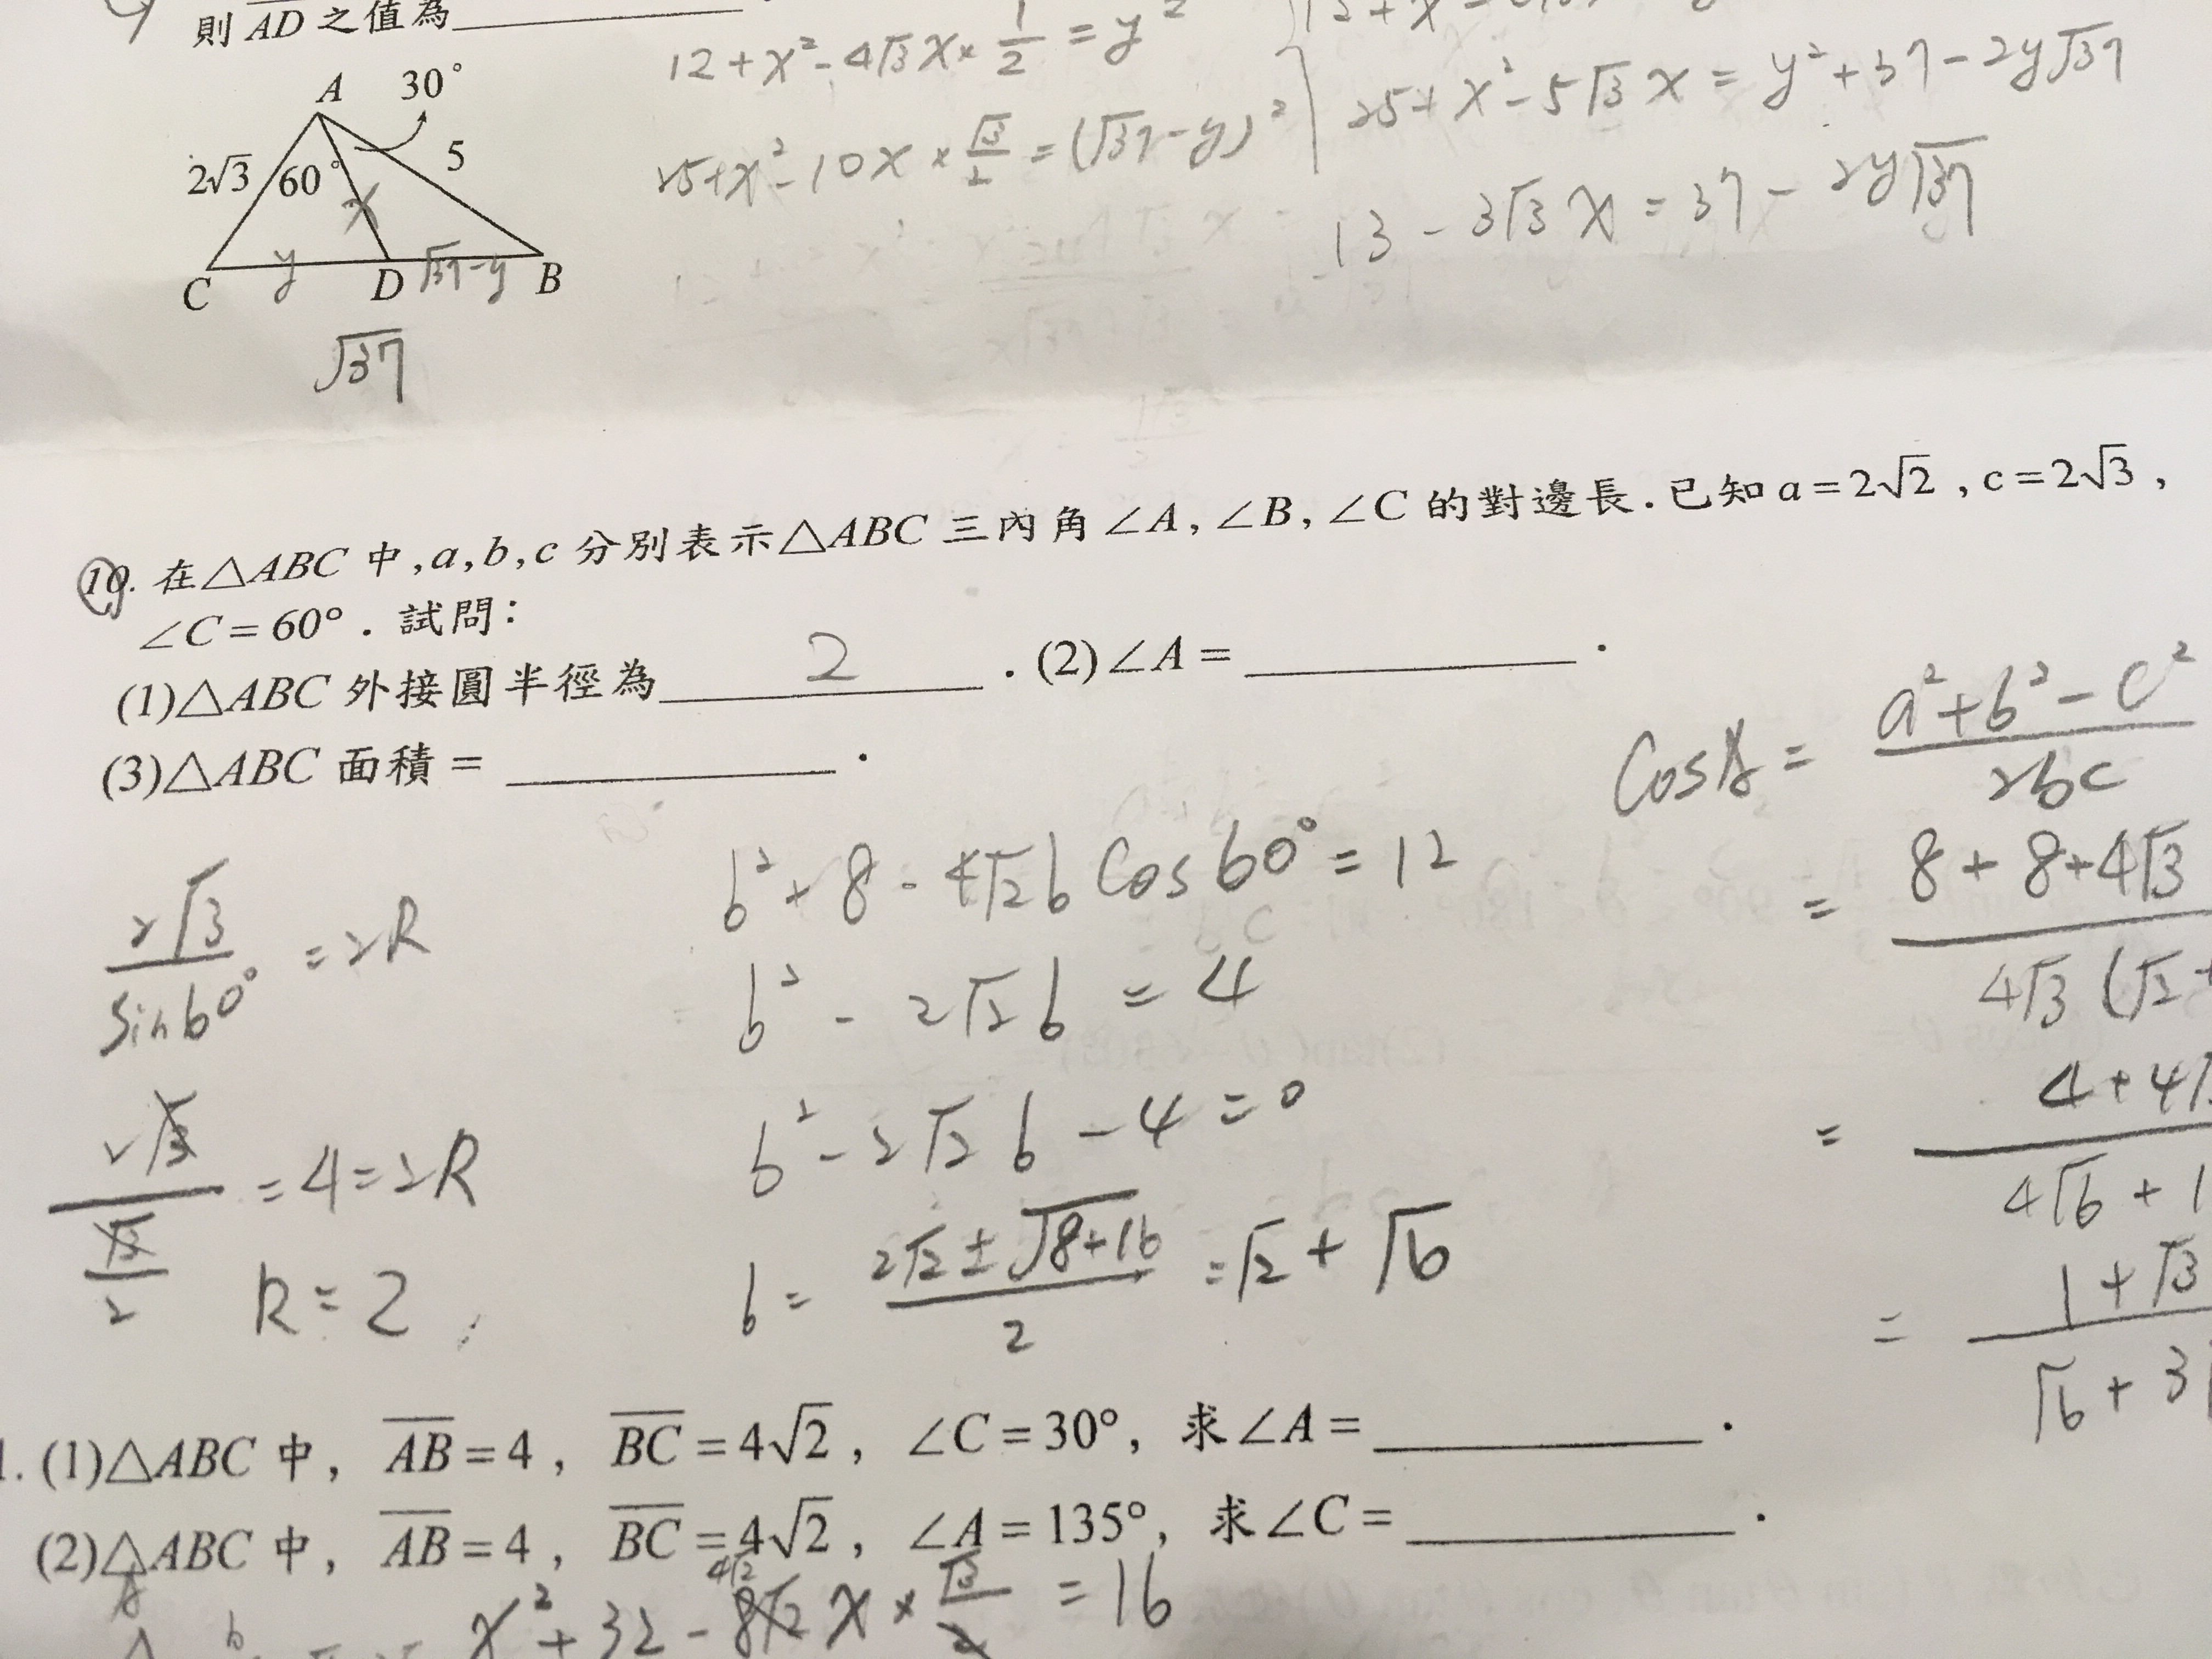 則 AD 之值為
A 30°
2√3 60° 5
x
y √37-y
C D B
√37
12+x²-4√3x×1/2=y²
25+x²-10x×√3/2=(√37-y)²
25+x²-5√3x=y²+37-2y√37
13-3√3x=37-2y√37
10. 在△ABC 中,a,b,c 分別表示△ABC 三內角∠A,∠B,∠C 的對邊長.已知 a=2√2,c=2√3,
∠C=60°.試問:
(1)△ABC 外接圓半徑為 2 .(2)∠A= .
(3)△ABC 面積= .
2√3/sin60°=2R
2√3/(√3/2)=4=2R
R=2
b²+8-4√2b cos60°=12
b²-2√2b=4
b²-2√2b-4=0
b=(2√2±√8+16)/2=√2+√6
cosA=(a²+b²-c²)/2bc
=8+8+4√3/4√3(√2+
=4+4√/4√6+1
=1+√3/√6+3
1. (1)△ABC 中, AB=4, BC=4√2, ∠C=30°, 求∠A= .
(2)△ABC 中, AB=4, BC=4√2, ∠A=135°, 求∠C= .
4√2
x²+32-8√2x×√3/2=16